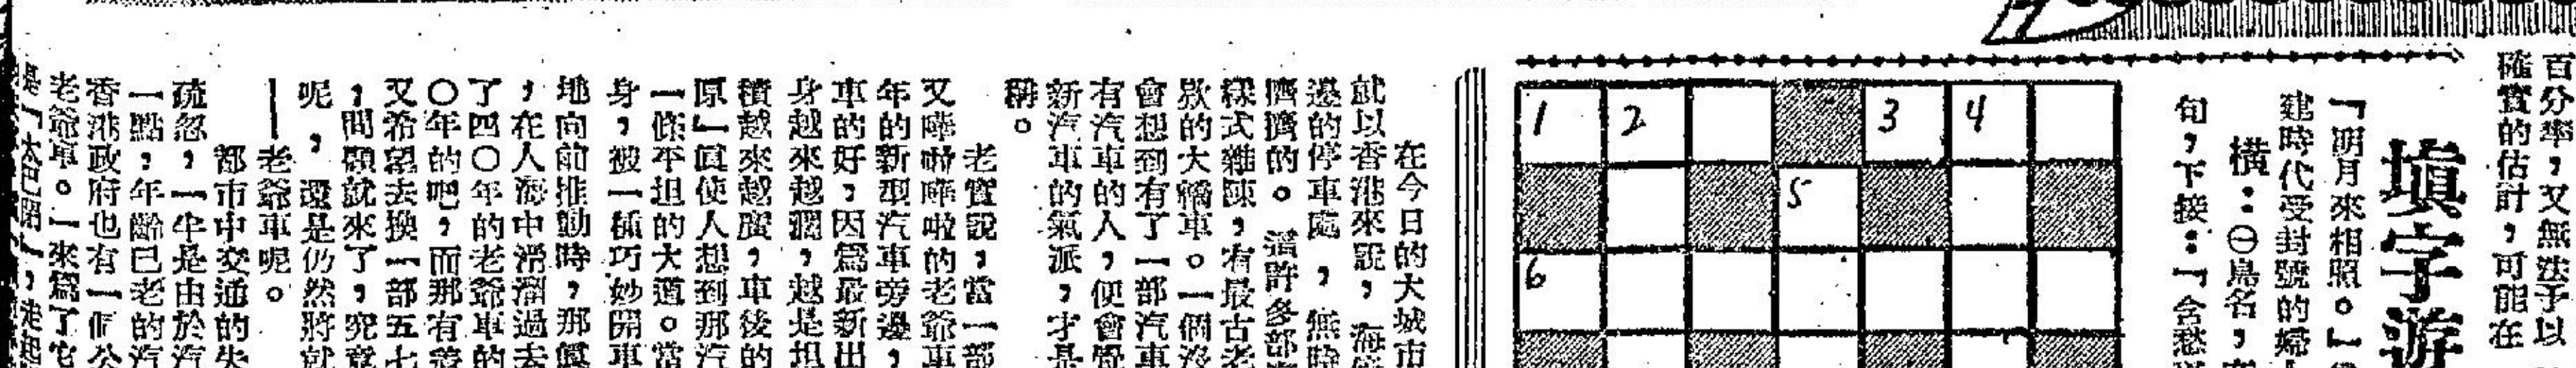 百分率，又無法予以
確實的估計，可能在
填字游
「明月來相照。」
建時代受封號的婦
橫：㊀鳥名，
句，下接：「含愁
1 2 3 4
5
6
在今日的大城市
就以香港來說，海
邊的停車處，無時
擠擠的。這許多部
樣式雜陳，有最古老
款的大轎車。一個沒
會想到有了一部汽車
有汽車的人，便會覺
新汽車的氣派，才是
稱。
老實說，當一部
又嘩啦嘩啦的老爺車
年的新型汽車旁邊，
車的好，因爲最新出
身越來越濶，越是坦
積越來越廣，車後的
原」眞使人想到那汽
一條平坦的大道。當
身，被一種巧妙開車
地向前推動時，那個
，在人海中滑溜過去
了四〇年的老爺車的
〇年的吧，而那有着
又希望去換一部五七
，問題就來了，究竟
呢，還是仍然將就
—老爺車呢。
都市中交通的失
疏忽，一半是由於汽
一點，年齡已老的汽
香港政府也有一個公
老爺車。一來爲了它